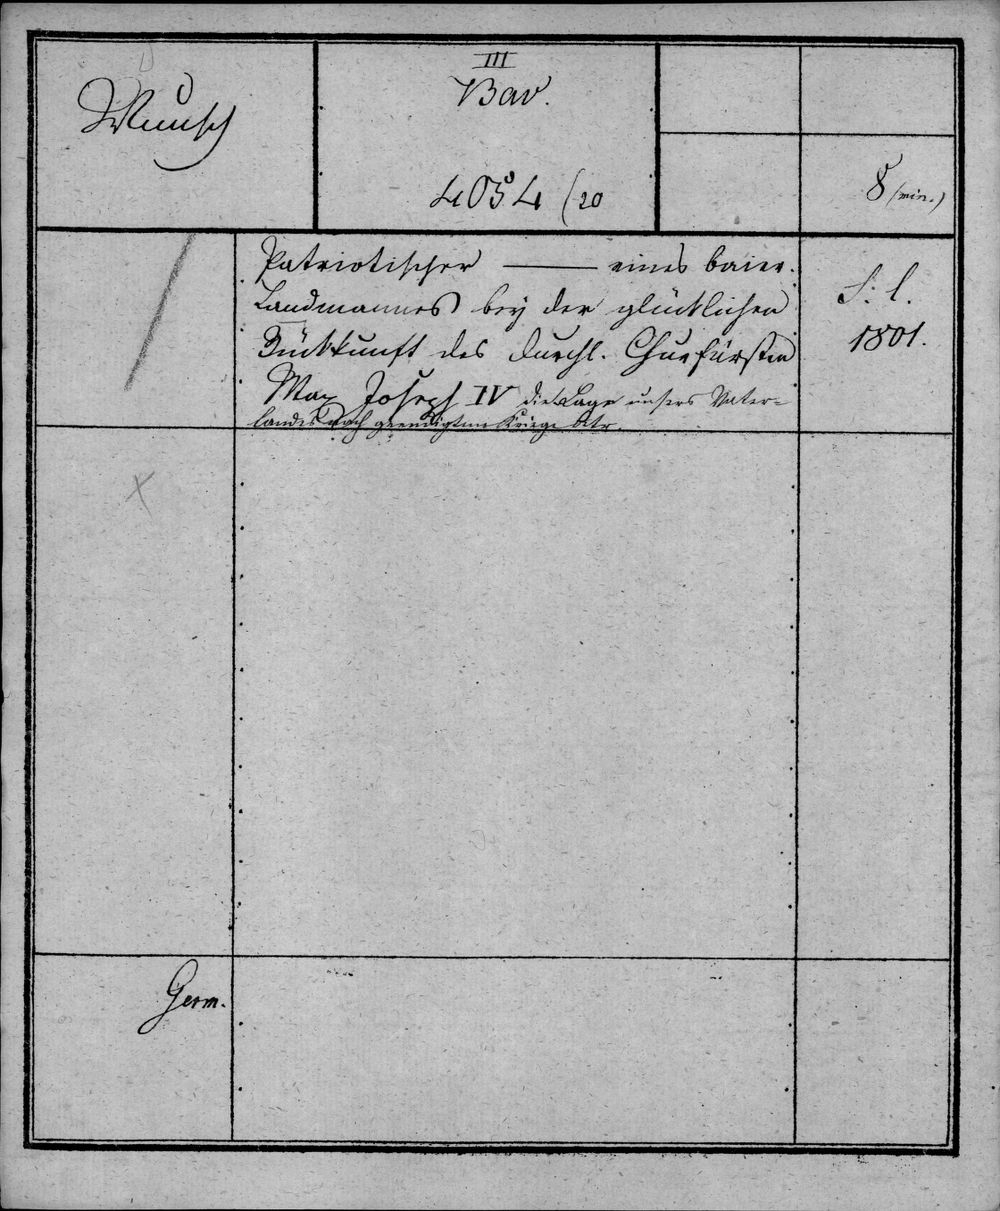 Wunsch
III
Bav.
4054 (20
8 (min.)
Patriotischer —— eines baier.
Landmannes bey der glücklichen
Rückkunft des durchl. Churfürsten
Max Joseph IV die Lage unsers Vater-
landes nach geendigtem Kriege betr.
S. l.
1801.
Germ.